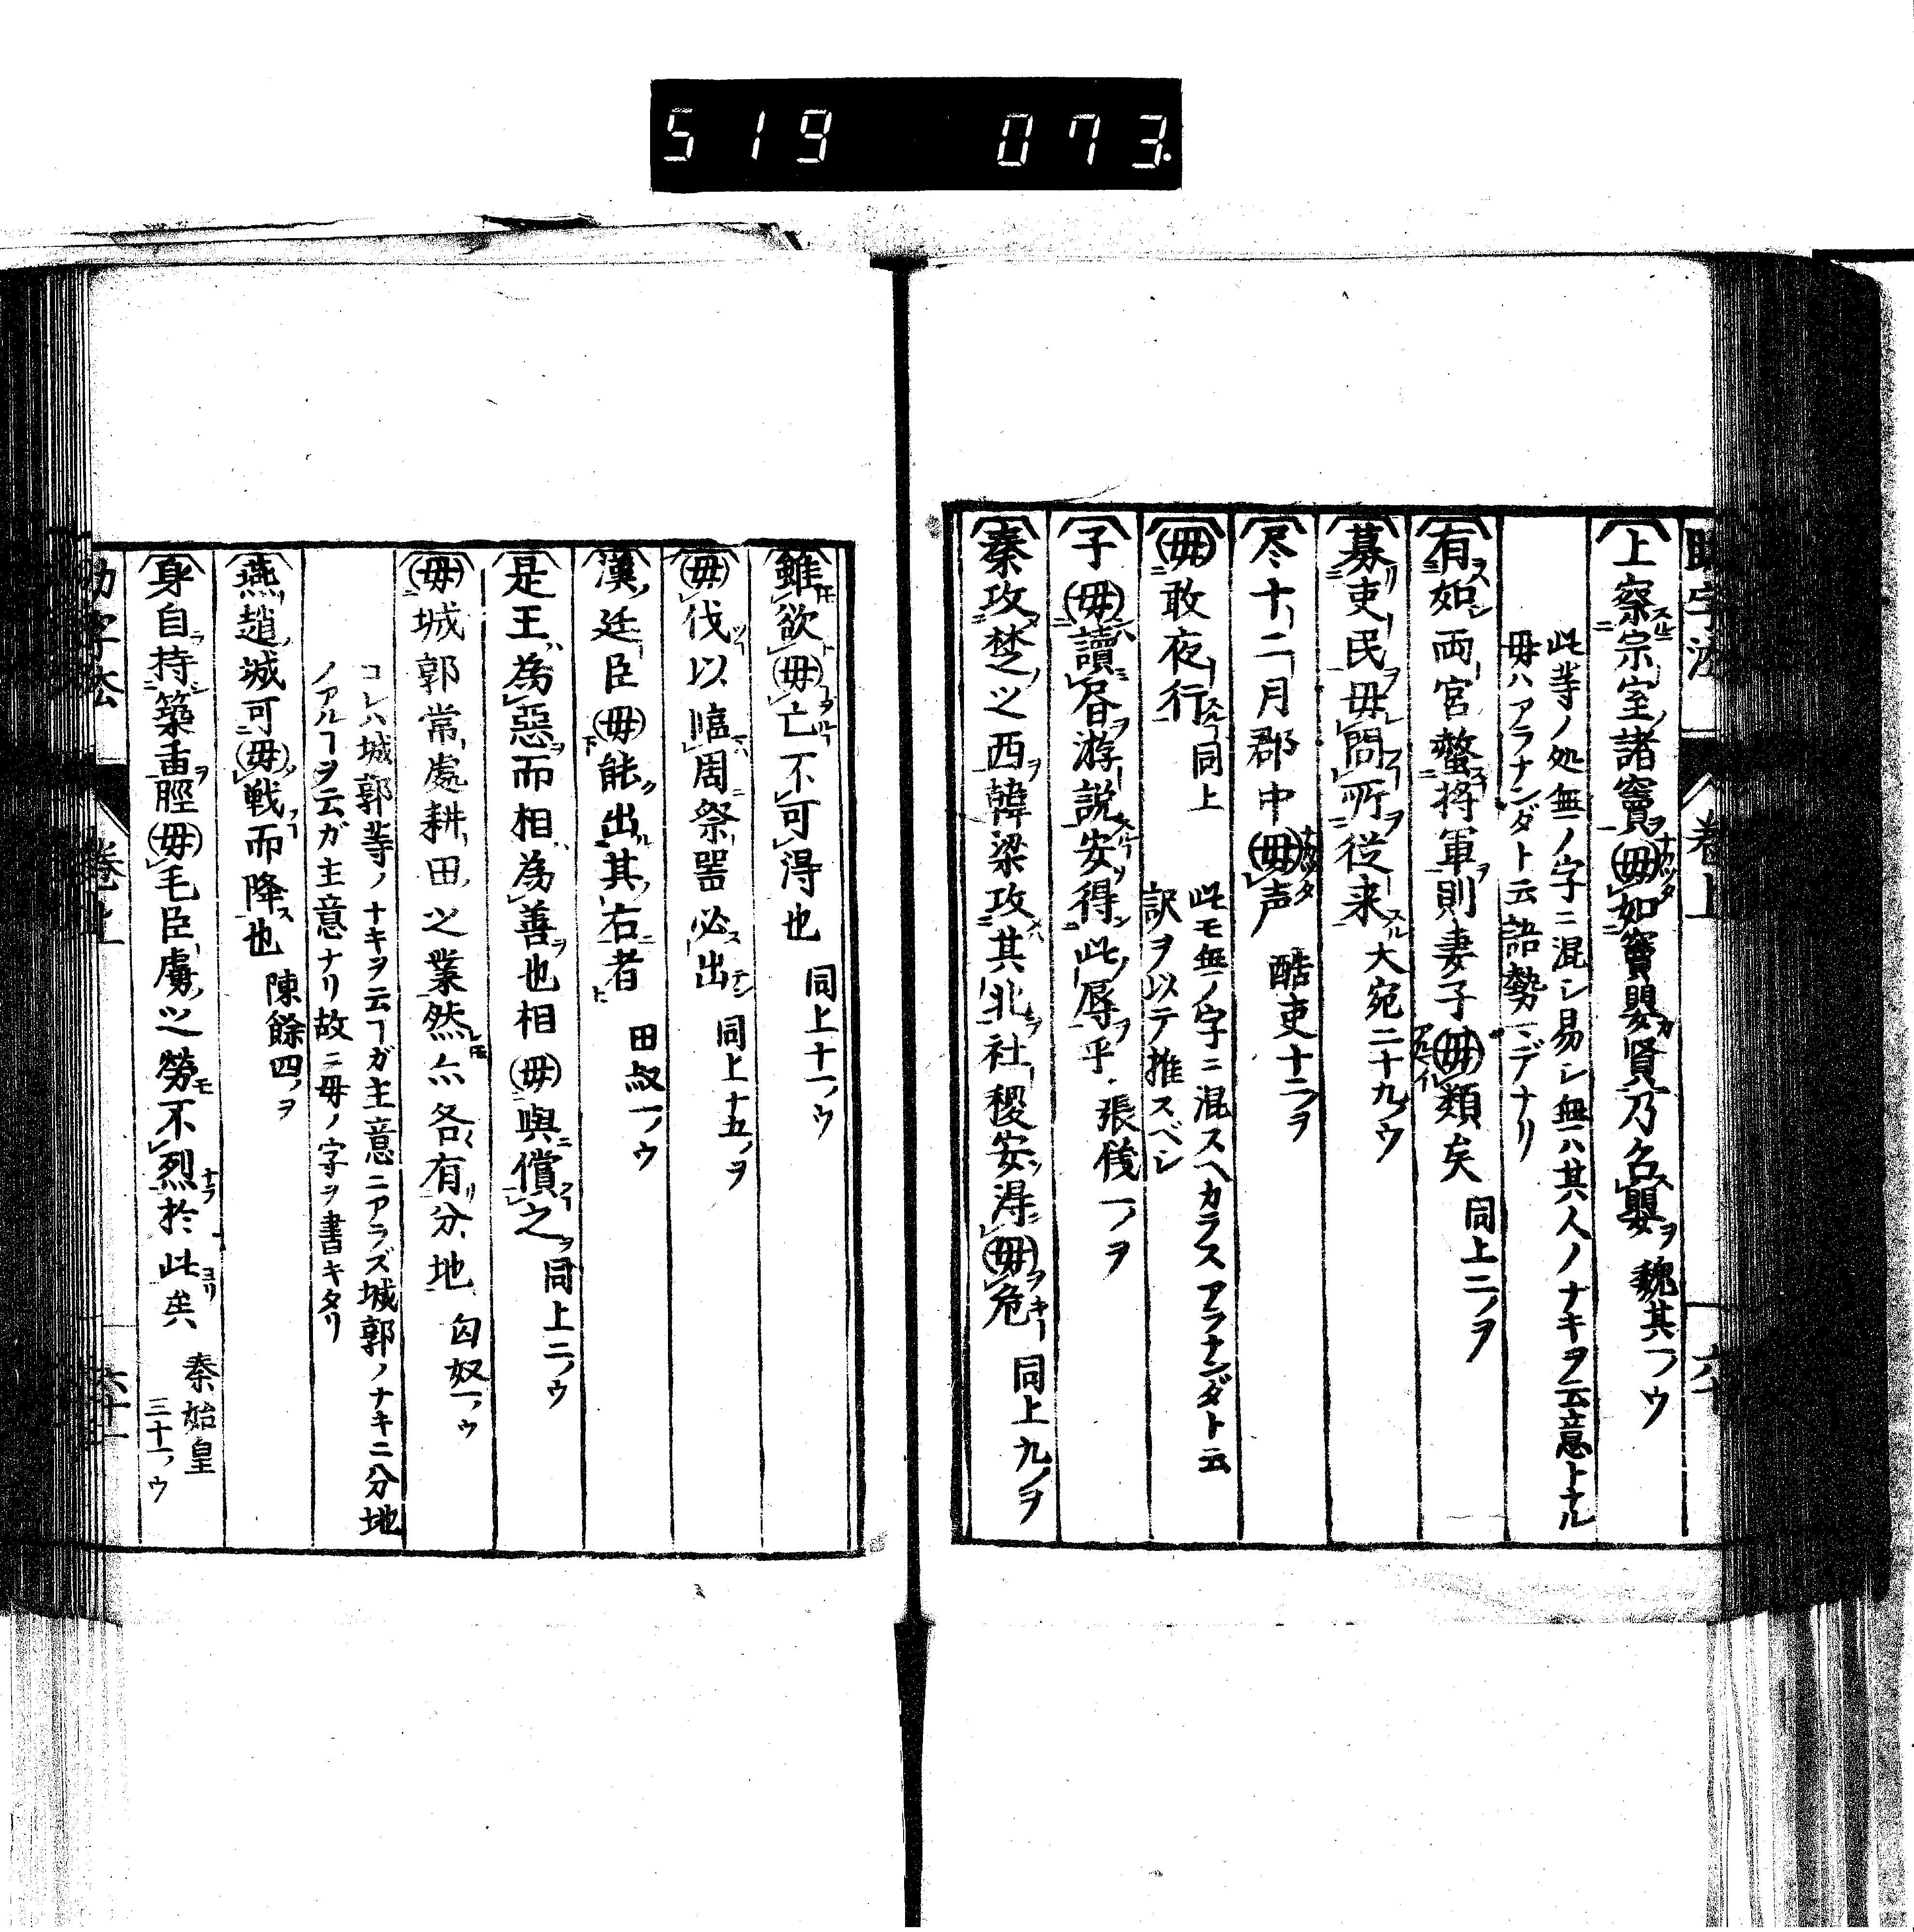 519 073.
助字法 卷上 六十
上察宗室諸竇毋如竇嬰賢乃召嬰 魏其一ノウ
此等ノ処無ノ字ニ混シ易シ無ハ其人ノナキヲ云意トナル
毋ハアラナンダト云語勢ニデナリ
有如両宮螫将軍則妻子毋類矣 同上二ノヲ
募吏民毋問所從来 大宛二十九ノウ
尽十二月郡中毋声 酷吏十二ノヲ
毋敢夜行 同上
此モ無ノ字ニ混スヘカラスアラナンダト云
訳ヲ以テ推スベシ
子毋讀書游説安得此辱乎 張儀一ノヲ
秦攻楚之西韓梁攻其北社稷安淂毋危 同上九ノヲ
雖欲毋亡不可淂也 同上十一ノウ
毋伐以臨周祭噐必出 同上十五ノヲ
漢廷臣毋能出其右者 田叔一ノウ
是王為惡而相為善也相毋與償之 同上二ノウ
毋城郭常處耕田之業然亦各有分地 匈奴一ノウ
コレハ城郭等ノナキヲ云ヿガ主意ニアラズ城郭ノナキニ分地
ノアルヿヲ云ガ主意ナリ故ニ毋ノ字ヲ書キタリ
燕趙城可毋戦而降也 陳餘四ノヲ
身自持築臿脛毋毛臣虜之勞不烈於此矣 秦始皇
三十一ノウ
助字法 卷上 六十一